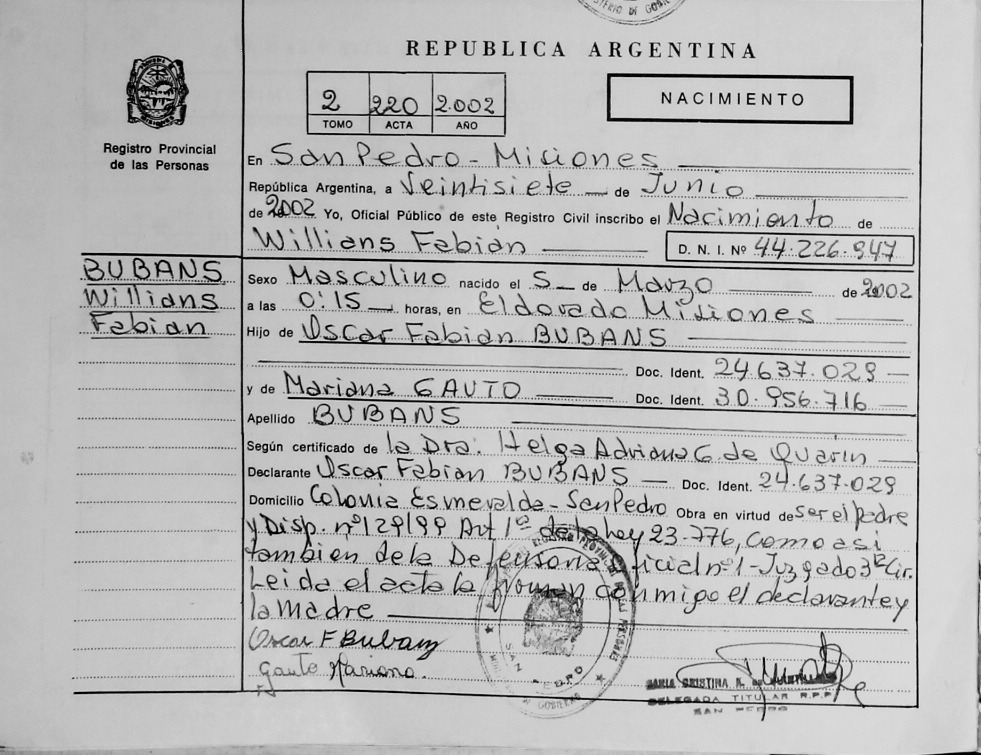 MINISTERIO DE GOBIERNO
REPUBLICA ARGENTINA
2 220 2.002
TOMO ACTA AÑO
NACIMIENTO
Registro Provincial
de las Personas
En San Pedro - Misiones
República Argentina, a Veintisiete de Junio
de 2002 Yo, Oficial Público de este Registro Civil inscribo el Nacimiento de
Willians Fabian D. N. I. Nº 44.226.947
BUBANS
Willians
Fabian
Sexo Masculino nacido el 5 de Marzo de 2002
a las 0:15 horas, en Eldorado Misiones
Hijo de Oscar Fabian BUBANS
Doc. Ident. 24.637.029
y de Mariana GAUTO Doc. Ident. 30.956.716
Apellido BUBANS
Según certificado de la Dra. Helga Adriana G de Quarin
Declarante Oscar Fabian BUBANS Doc. Ident. 24.637.029
Domicilio Colonia Esmeralda - San Pedro Obra en virtud de ser el padre
y Disp. nº 129/99 Art 1º de la Ley 23.776, como asi
tambien de la Defensoria Oficial nº1 - Juzgado 3º Cir.
Leida el acta la firman conmigo el declarante y
la madre
Oscar F Bubans
Gauto Mariana.
SAN PEDRO
MARIA CRISTINA R.
DELEGADA TITULAR R.P.P.
SAN PEDRO